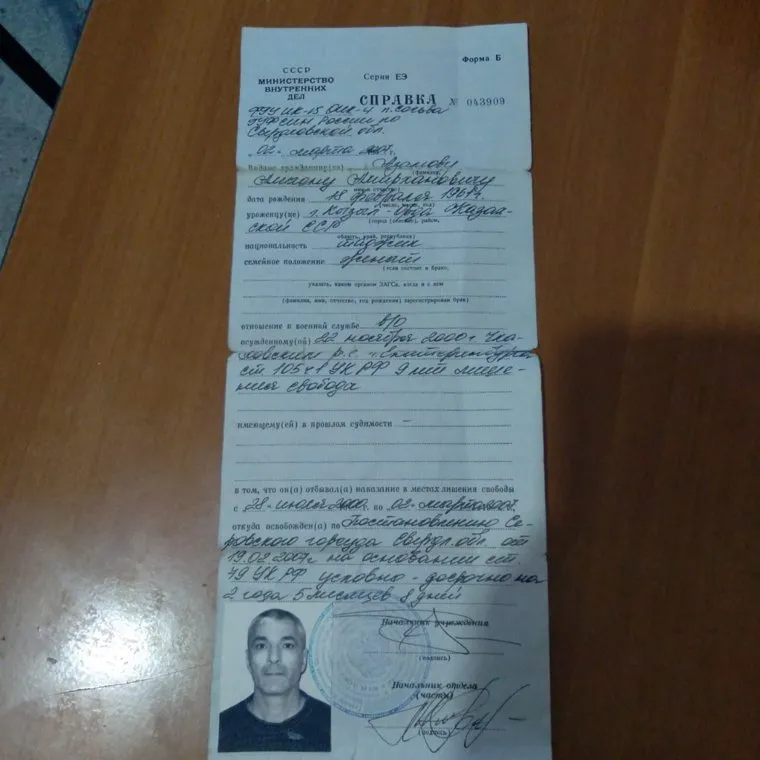 Форма Б
СССР
МИНИСТЕРСТВО
ВНУТРЕННИХ
ДЕЛ
Серия ЕЭ
СПРАВКА № 043909
ФГУ ИК-15 ОИК-4 п. Сосьва
ГУФСИН России по
Свердловской обл.
"02" марта 2007г.
Выдана гражданину(ке) Азамову
(фамилия)
Амирхановичу
(имя и отчество)
дата рождения 18 февраля
(число, месяц, год)
уроженцу(ке) г. Кызыл-Орда Казах-
(город (селение), район,
ской ССР
область, край, республика)
национальность таджик
семейное положение женат
(если состоит в браке,
указать, каким органом ЗАГСа, когда и с кем
(фамилия, имя, отчество, год рождения) зарегистрирован брак)
отношение к военной службе в/о
осужденному(ой) 22 ноября 2000г Чка-
ловским р.с. г. Екатеринбурга
ст 105 ч 1 УК РФ 9 лет лише-
ния свобода
имеющему(ей) в прошлом судимости —
в том, что он(а) отбывал(а) наказание в местах лишения свободы
с "28" июля 2000г. по "02" марта 2007.
откуда освобожден(а) по Постановлению Се-
ровского горсуда Свердл. обл. от
19.02.2007г на основании ст.
79 УК РФ условно-досрочно на
2 года 5 месяцев 8 дней
Начальник учреждения
(подпись)
Начальник отдела
(части)
(подпись)